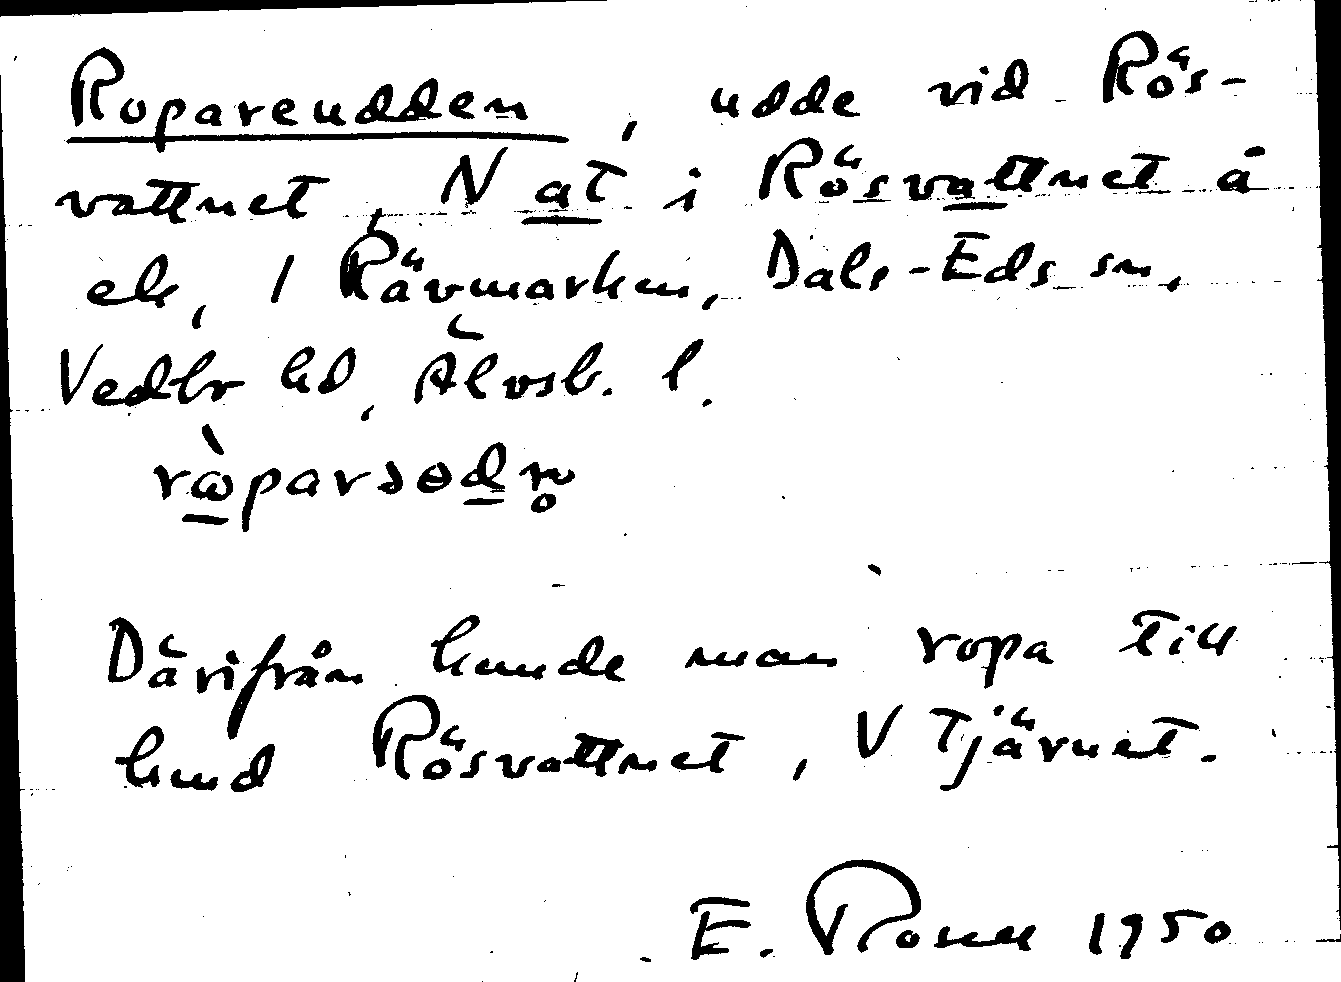 Ropareudden, udde vid Rös-
vattnet, N at i Rösvattnet å
ek, 1 Rävmarken, Dals-Eds sn,
Vedbr hd, Älvsb. l.
ròparsodn̥
Därifrån kunde man ropa till
lund Rösvattnet, V Tjärnet.
E. Rosell 1950